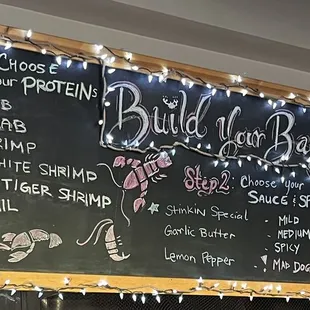 CHOOSE
our PROTEINS
B
AB
RIMP
HITE SHRIMP
TIGER SHRIMP
IL
Build Your Ba
Step 2
Choose Your
SAUCE & SP
Stinkin Special
Garlic Butter
Lemon Pepper
MILD
MEDIUM
SPICY
MAD DOG